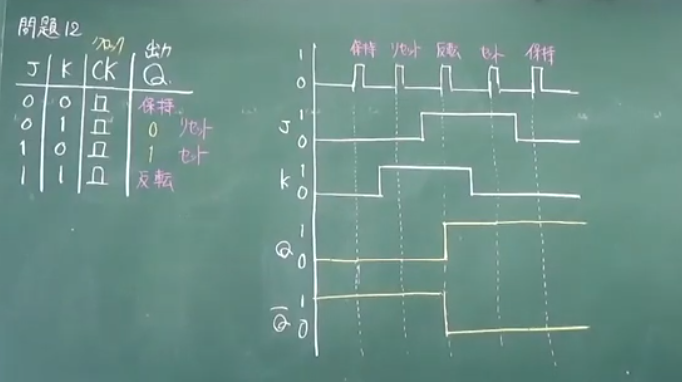 問題12
クロック 出力
J K CK Q.
0 0 保持
0 1 0 リセット
1 0 1 セット
1 1 反転
保持 リセット 反転 セット 保持
1
0
J 1
0
K 1
0
1
Q 0
1
Q̅ 0